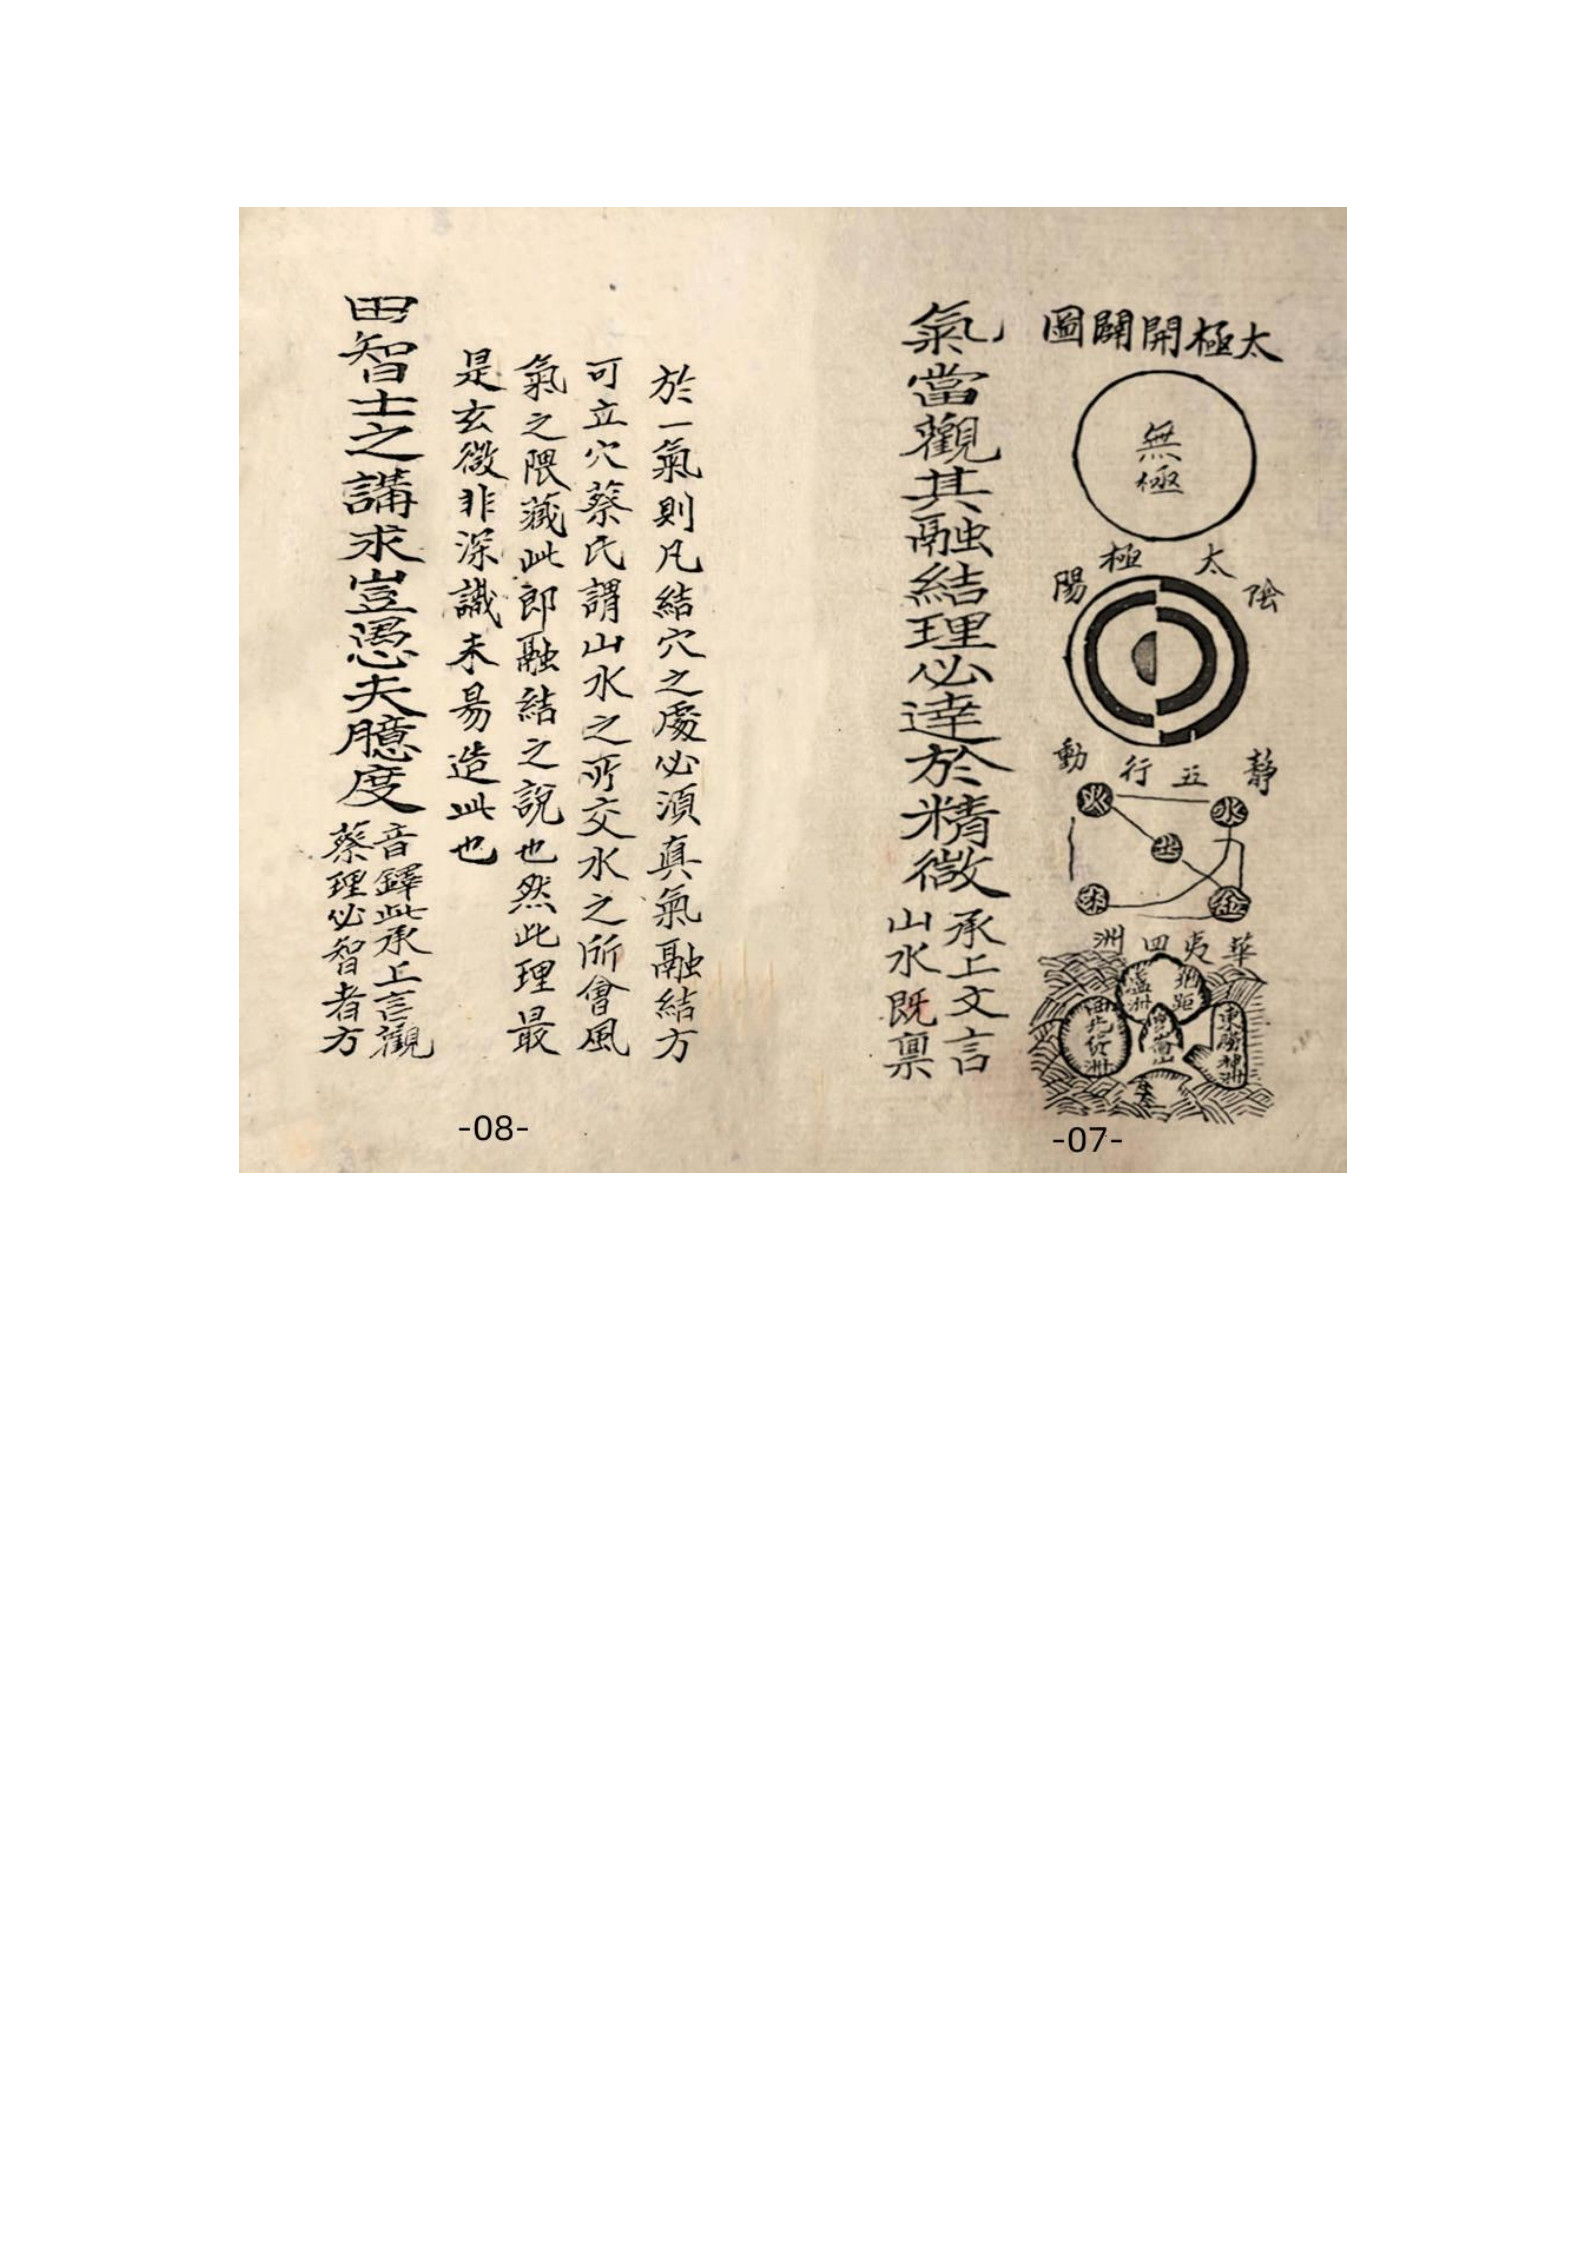 太極開闢圖
無極
太極
陰
陽
靜
五行
動
水
火
土
金
木
華夷四洲
北距
盧洲
東勝神洲
西
洲
氣當觀其融結理必達於精微
承上文言
山水既禀
-07-
於一氣則凡結穴之處必須真氣融結方
可立穴蔡氏謂山水之所交水之所會風
氣之隈藏此即融結之說也然此理最
是玄微非深識未易造此也
由智士之講求豈愚夫臆度
音鐸此承上言觀
蔡理必智者方
-08-